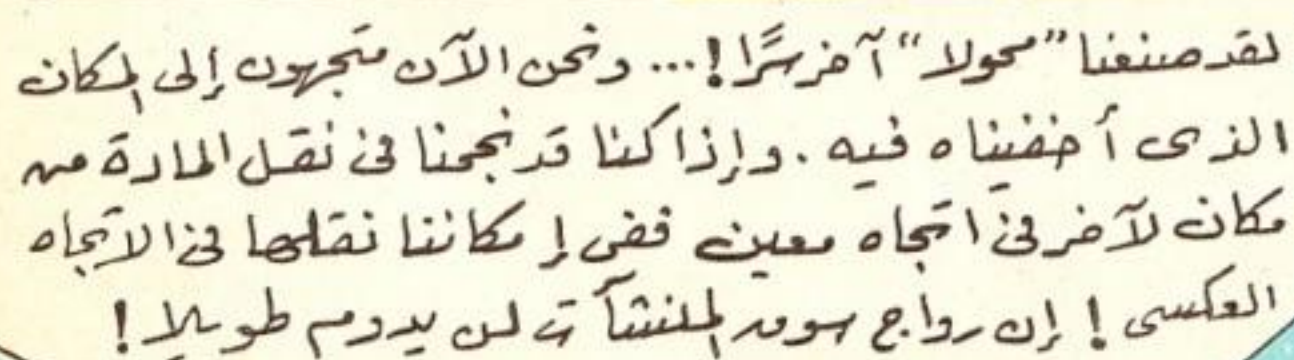 لقد صنعنا "محولا" آخر سرًّا !... ونحن الآن متجهون إلى المكان
الذى أخفيناه فيه . وإذا كنا قد نجحنا فى نقل المادة من
مكان لآخر فى اتجاه معين ففى إمكاننا نقلها فى الاتجاه
العكسى ! إن رواج سوق المنشآت لن يدوم طويلا !